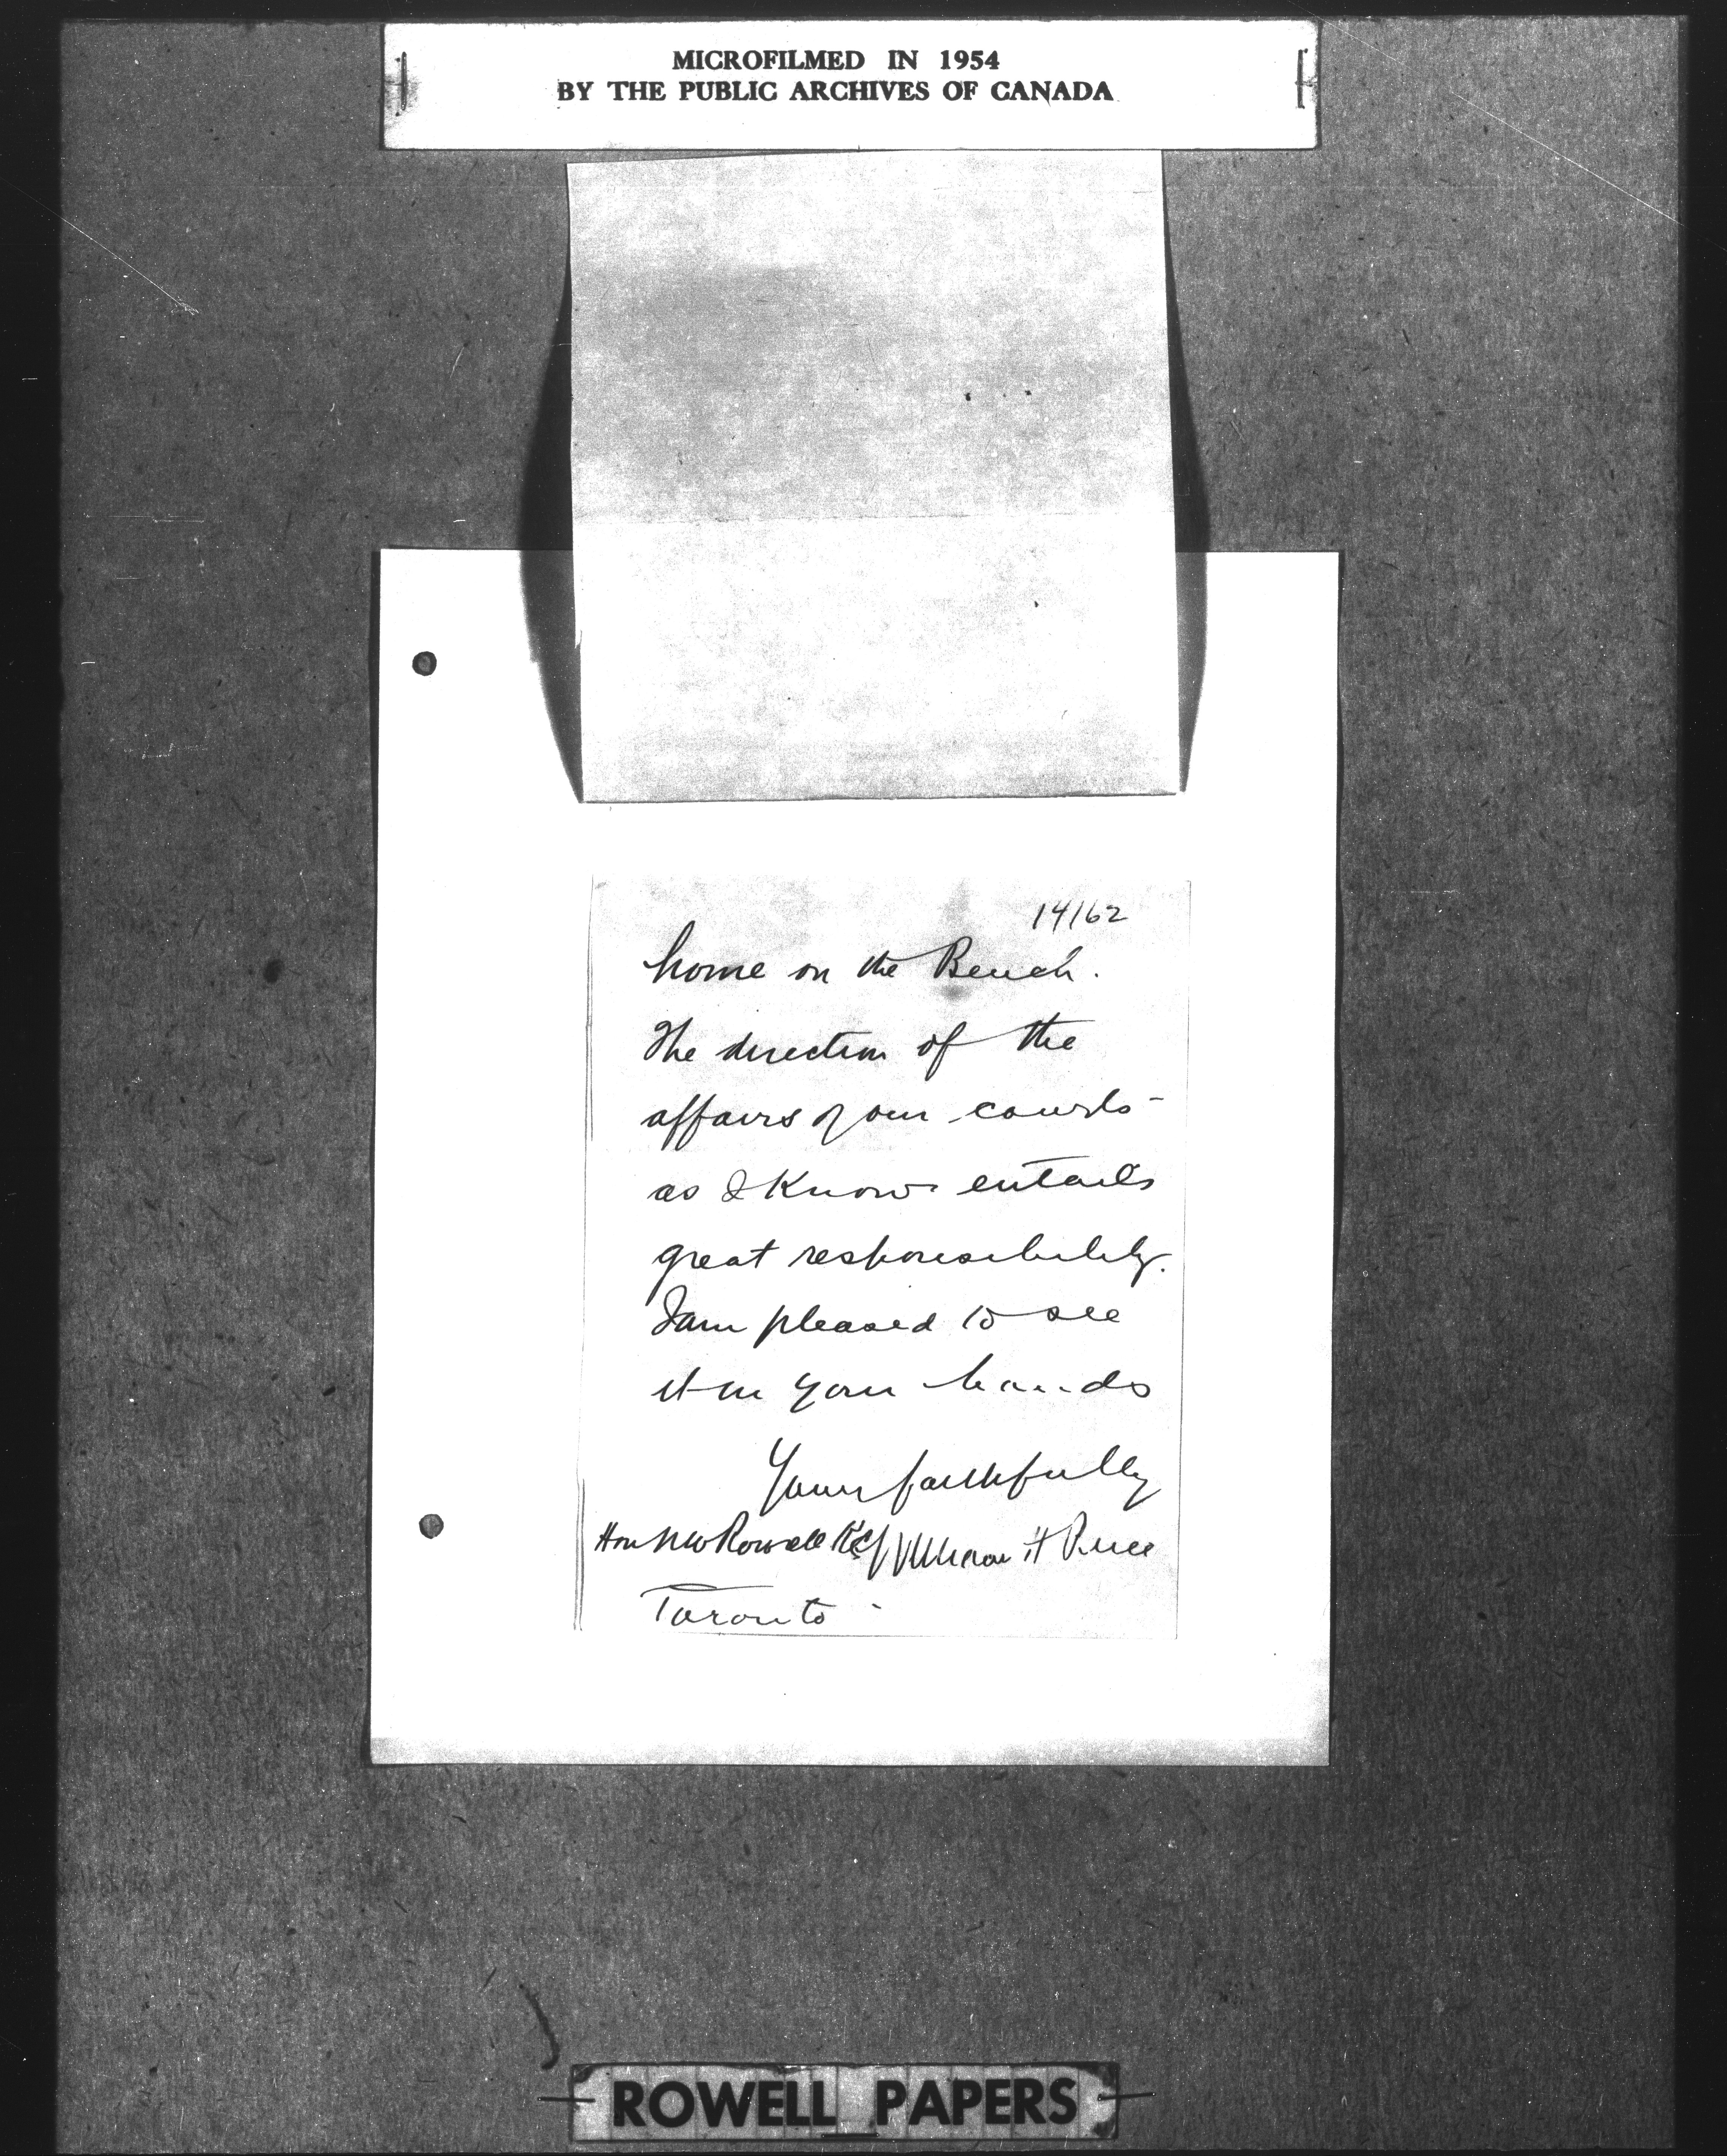 MICROFILMED IN 1954
BY THE PUBLIC ARCHIVES OF CANADA
14162
home on the Bench.
The direction of the
affairs of our courts -
as I know entails
great responsibility.
I am pleased to see
it in your hands
Yours faithfully
Hon N W Rowell KC William H
Toronto -
ROWELL PAPERS